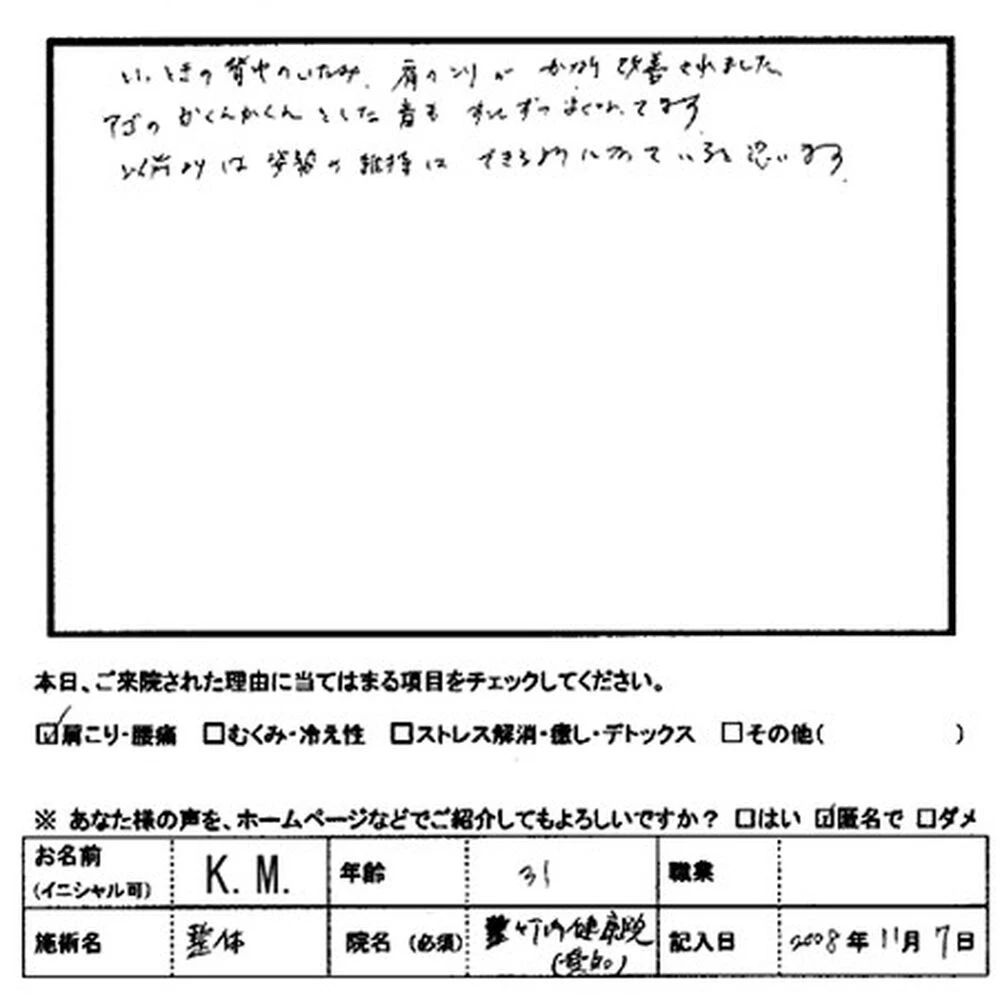 いっときの背中のいたみ、肩のコリが かなり 改善されました。
アゴの がくんがくん とした 音も すこしずつ よくなってます。
以前よりは 姿勢の 維持は できるようになっていると思います。
本日、ご来院された理由に当てはまる項目をチェックしてください。
☑肩こり・腰痛 □むくみ・冷え性 □ストレス解消・癒し・デトックス □その他( )
※ あなた様の声を、ホームページなどでご紹介してもよろしいですか？ □はい ☑匿名で □ダメ
お名前 (イニシャル可) K.M. 年齢 31 職業
施術名 整体 院名 (必須) 竹内健康院 (愛知) 記入日 2008年11月7日